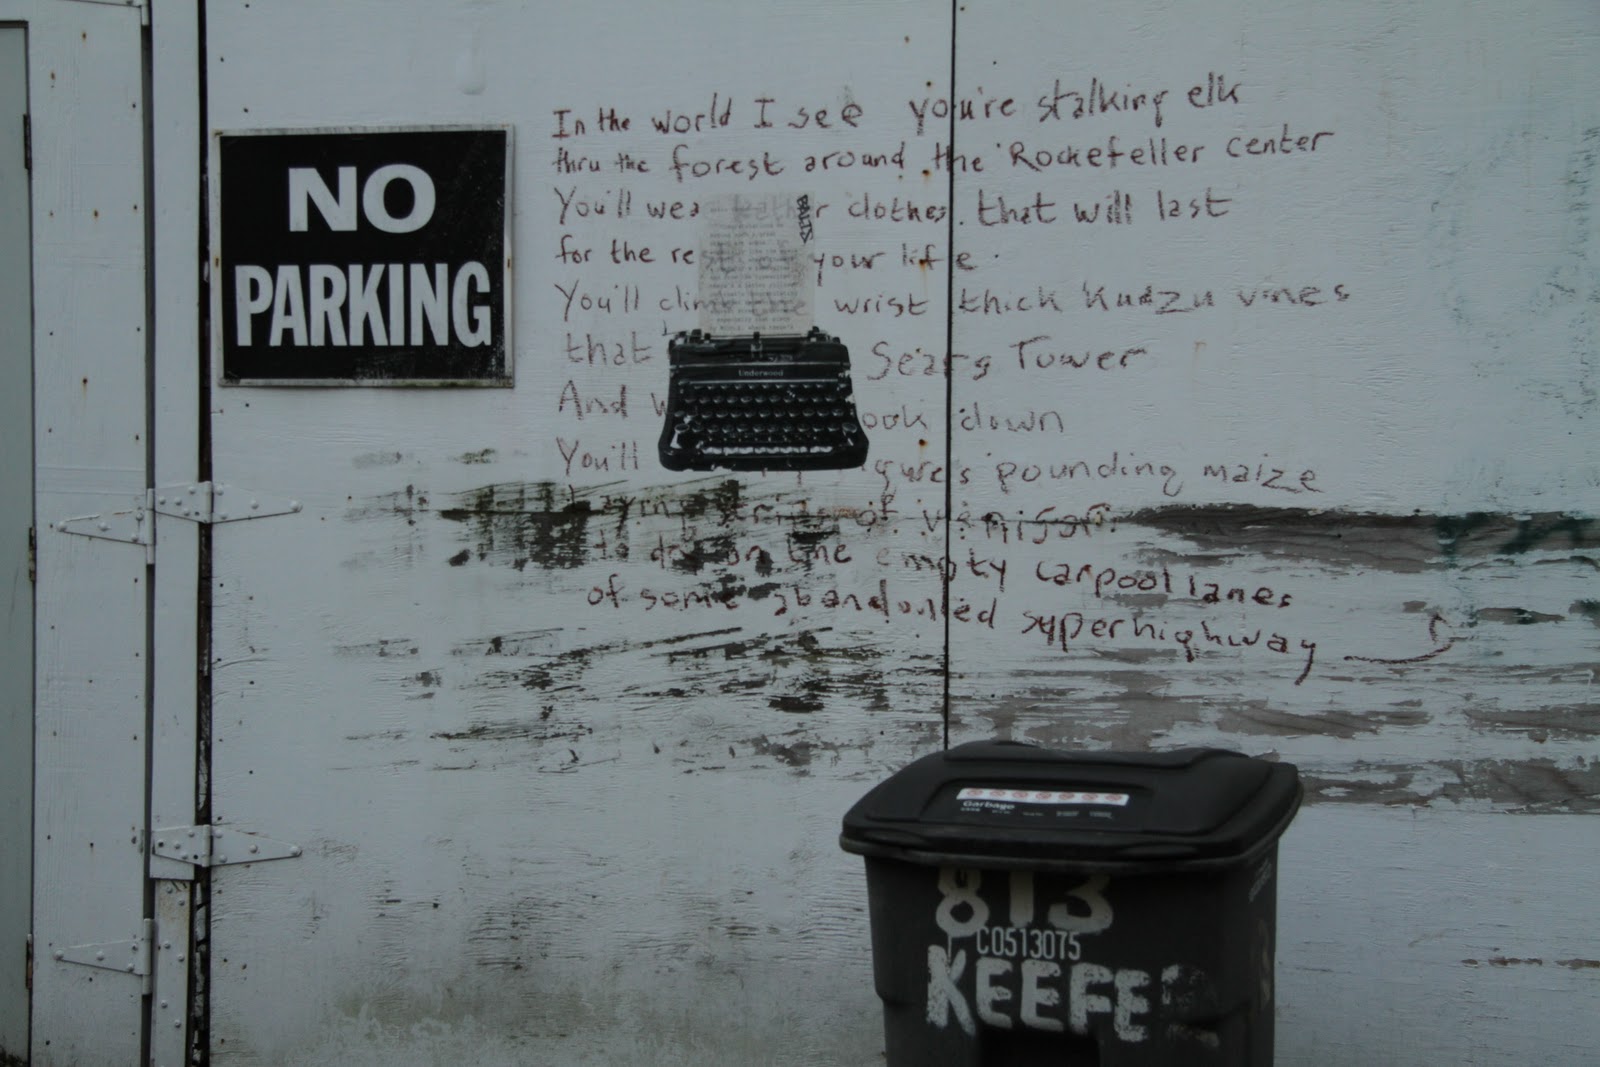 NO
PARKING
In the world I see you're stalking elk
thru the forest around the Rockefeller center
You'll wear leather clothes that will last
for the rest of your life.
You'll climb the wrist thick kudzu vines
that Sears Tower
And look down
You'll figures pounding maize
Laying strips of venison
to dry on the empty carpool lanes
of some abandonned superhighway
Underwood
Garbage
813
C0513075
KEEFE2